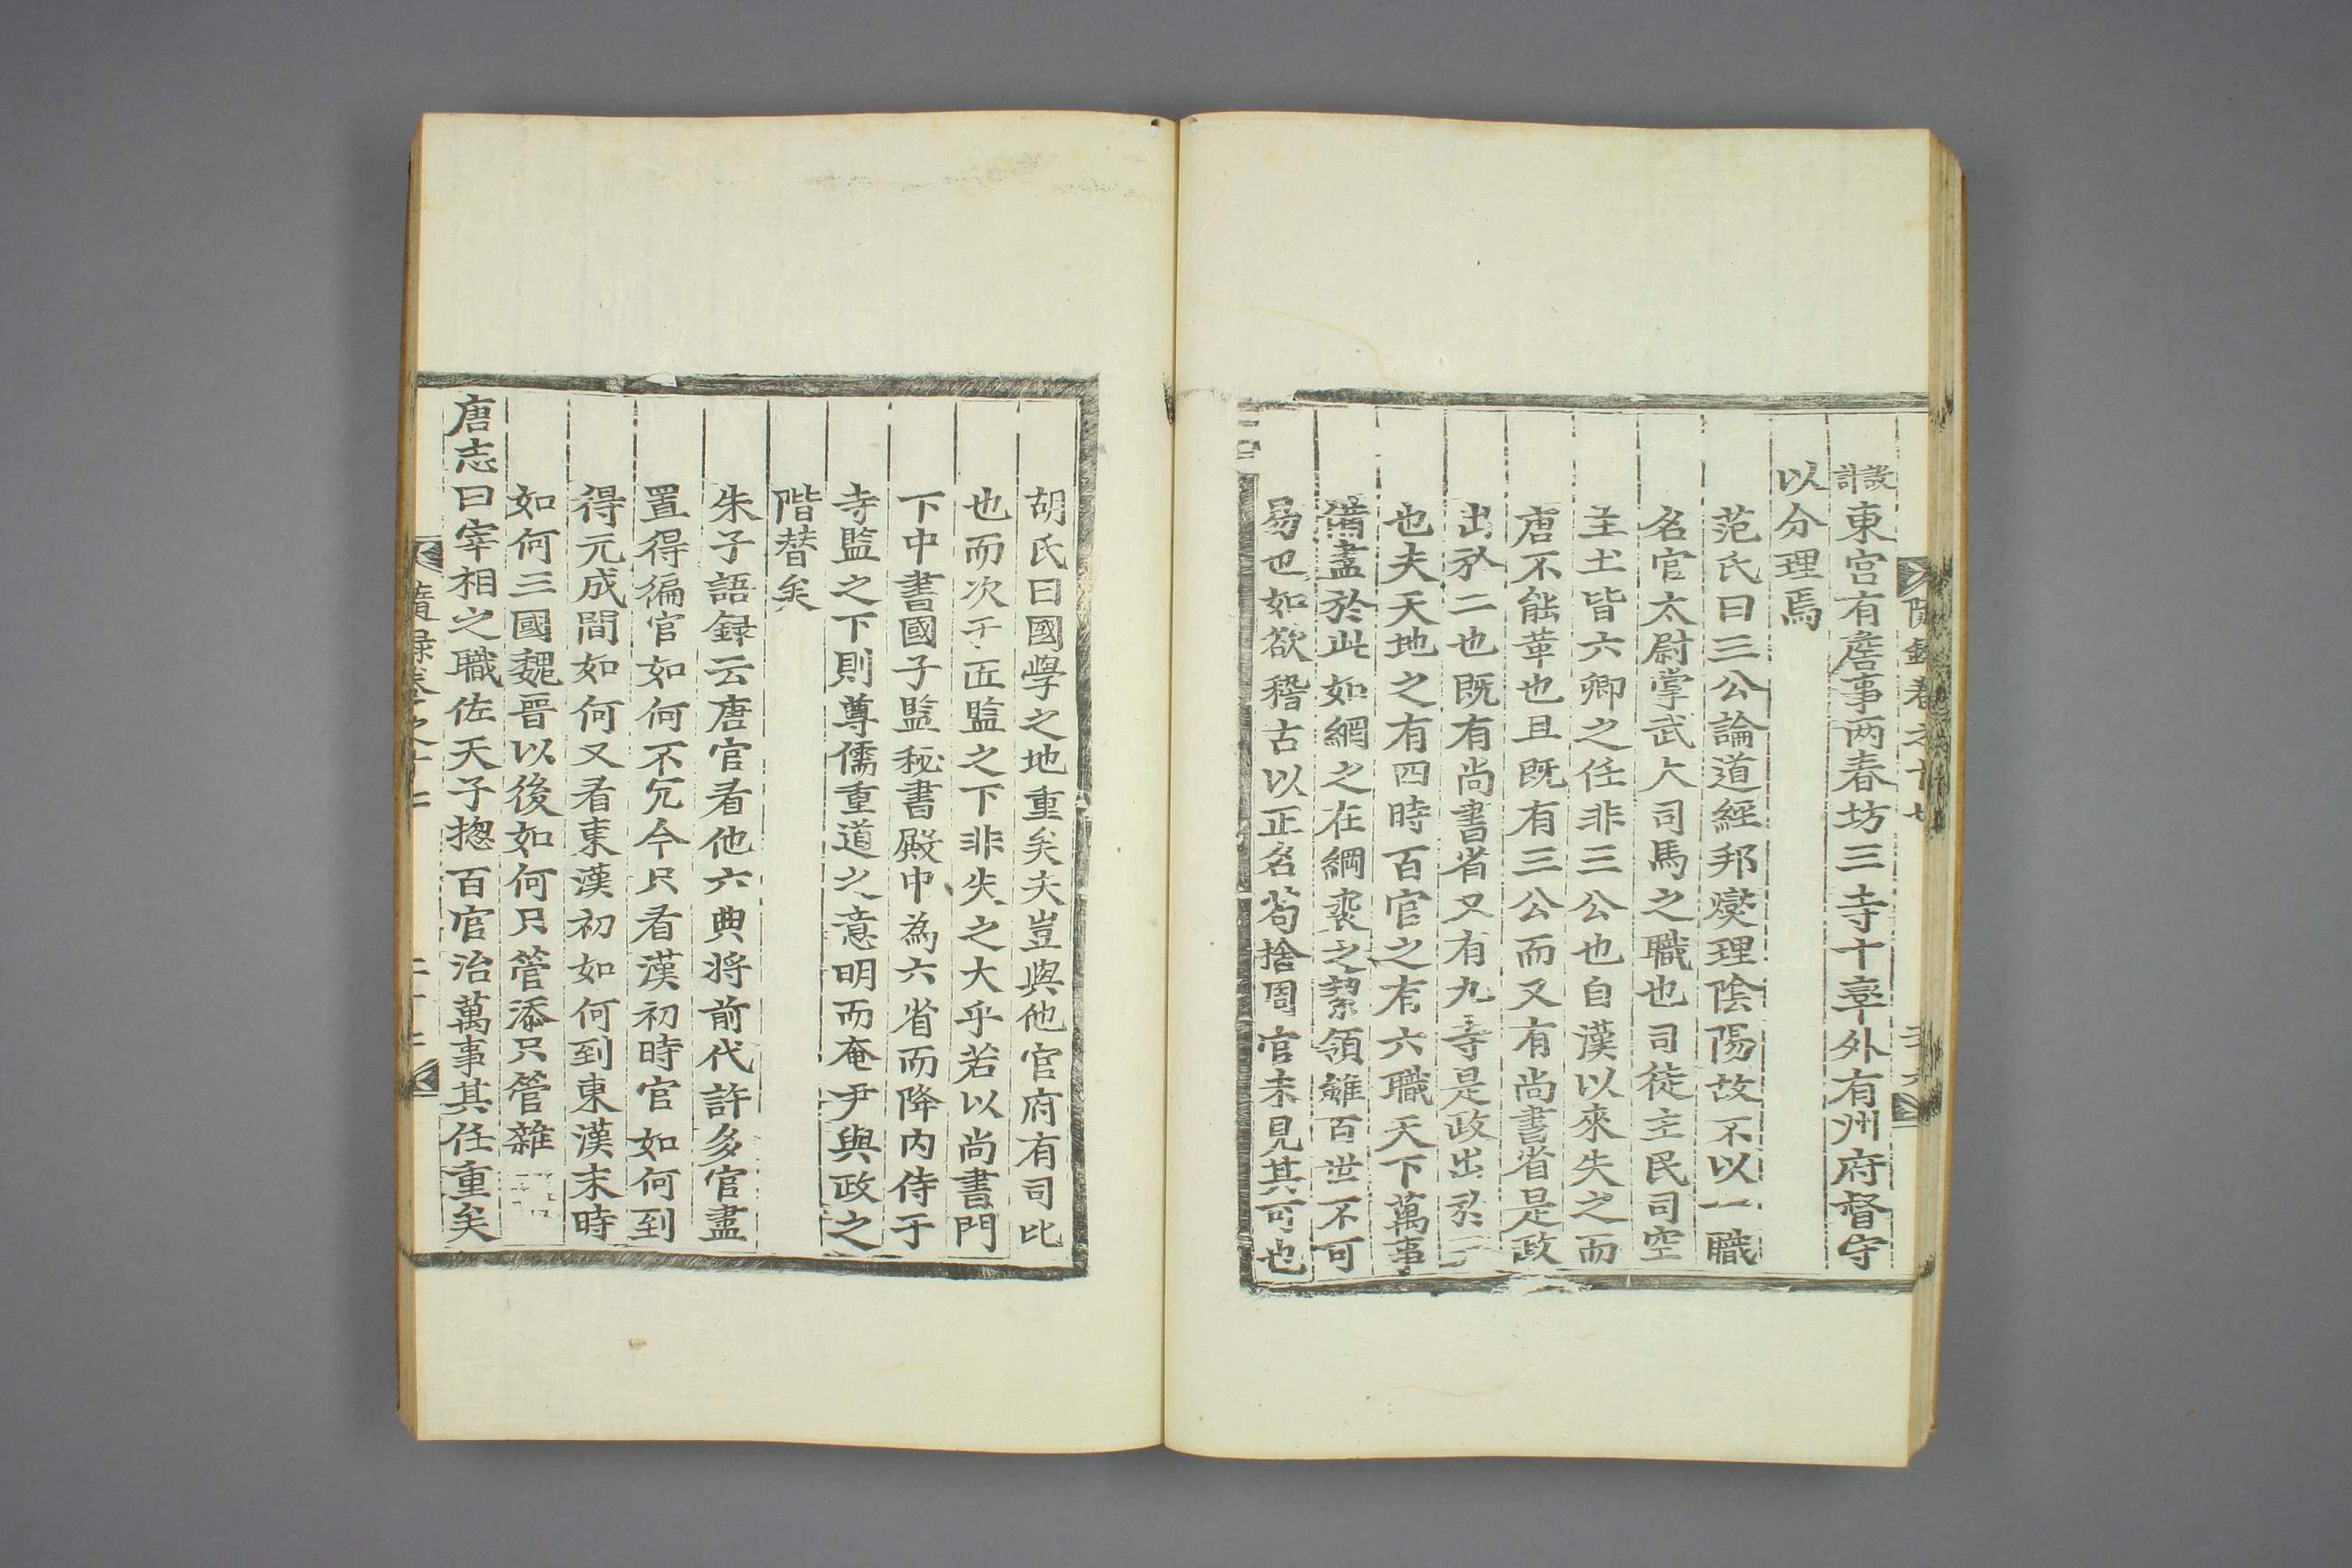 東宮有詹事两春坊三寺十率外有州府督守
以分理焉
范氏曰三公論道經邦燮理陰陽故不以一職
名官太尉掌武大司馬之職也司徒主民司空
主土皆六卿之任非三公也自漢以來失之而
唐不能革也且既有三公而又有尚書省是政
出於二也既有尚書省又有九寺是政出於三
也夫天地之有四時百官之有六職天下萬事
備盡於此如網之在綱裘之挈領雖百世不可
易也如欲稽古以正名苟捨周官未見其可也
胡氏曰國學之地重矣夫豈與他官府有司比
也而次于匠監之下非失之大乎若以尚書門
下中書國子監秘書殿中為六省而降內侍于
寺監之下則尊儒重道之意明而奄尹與政之
階替矣
朱子語録云唐官看他六典將前代許多官盡
置得徧官如何不冗今只看漢初時官如何到
得元成間如何又看東漢初如何到東漢末時
如何三國魏晉以後如何只管添只管雜
唐志曰宰相之職佐天子揔百官治萬事其任重矣